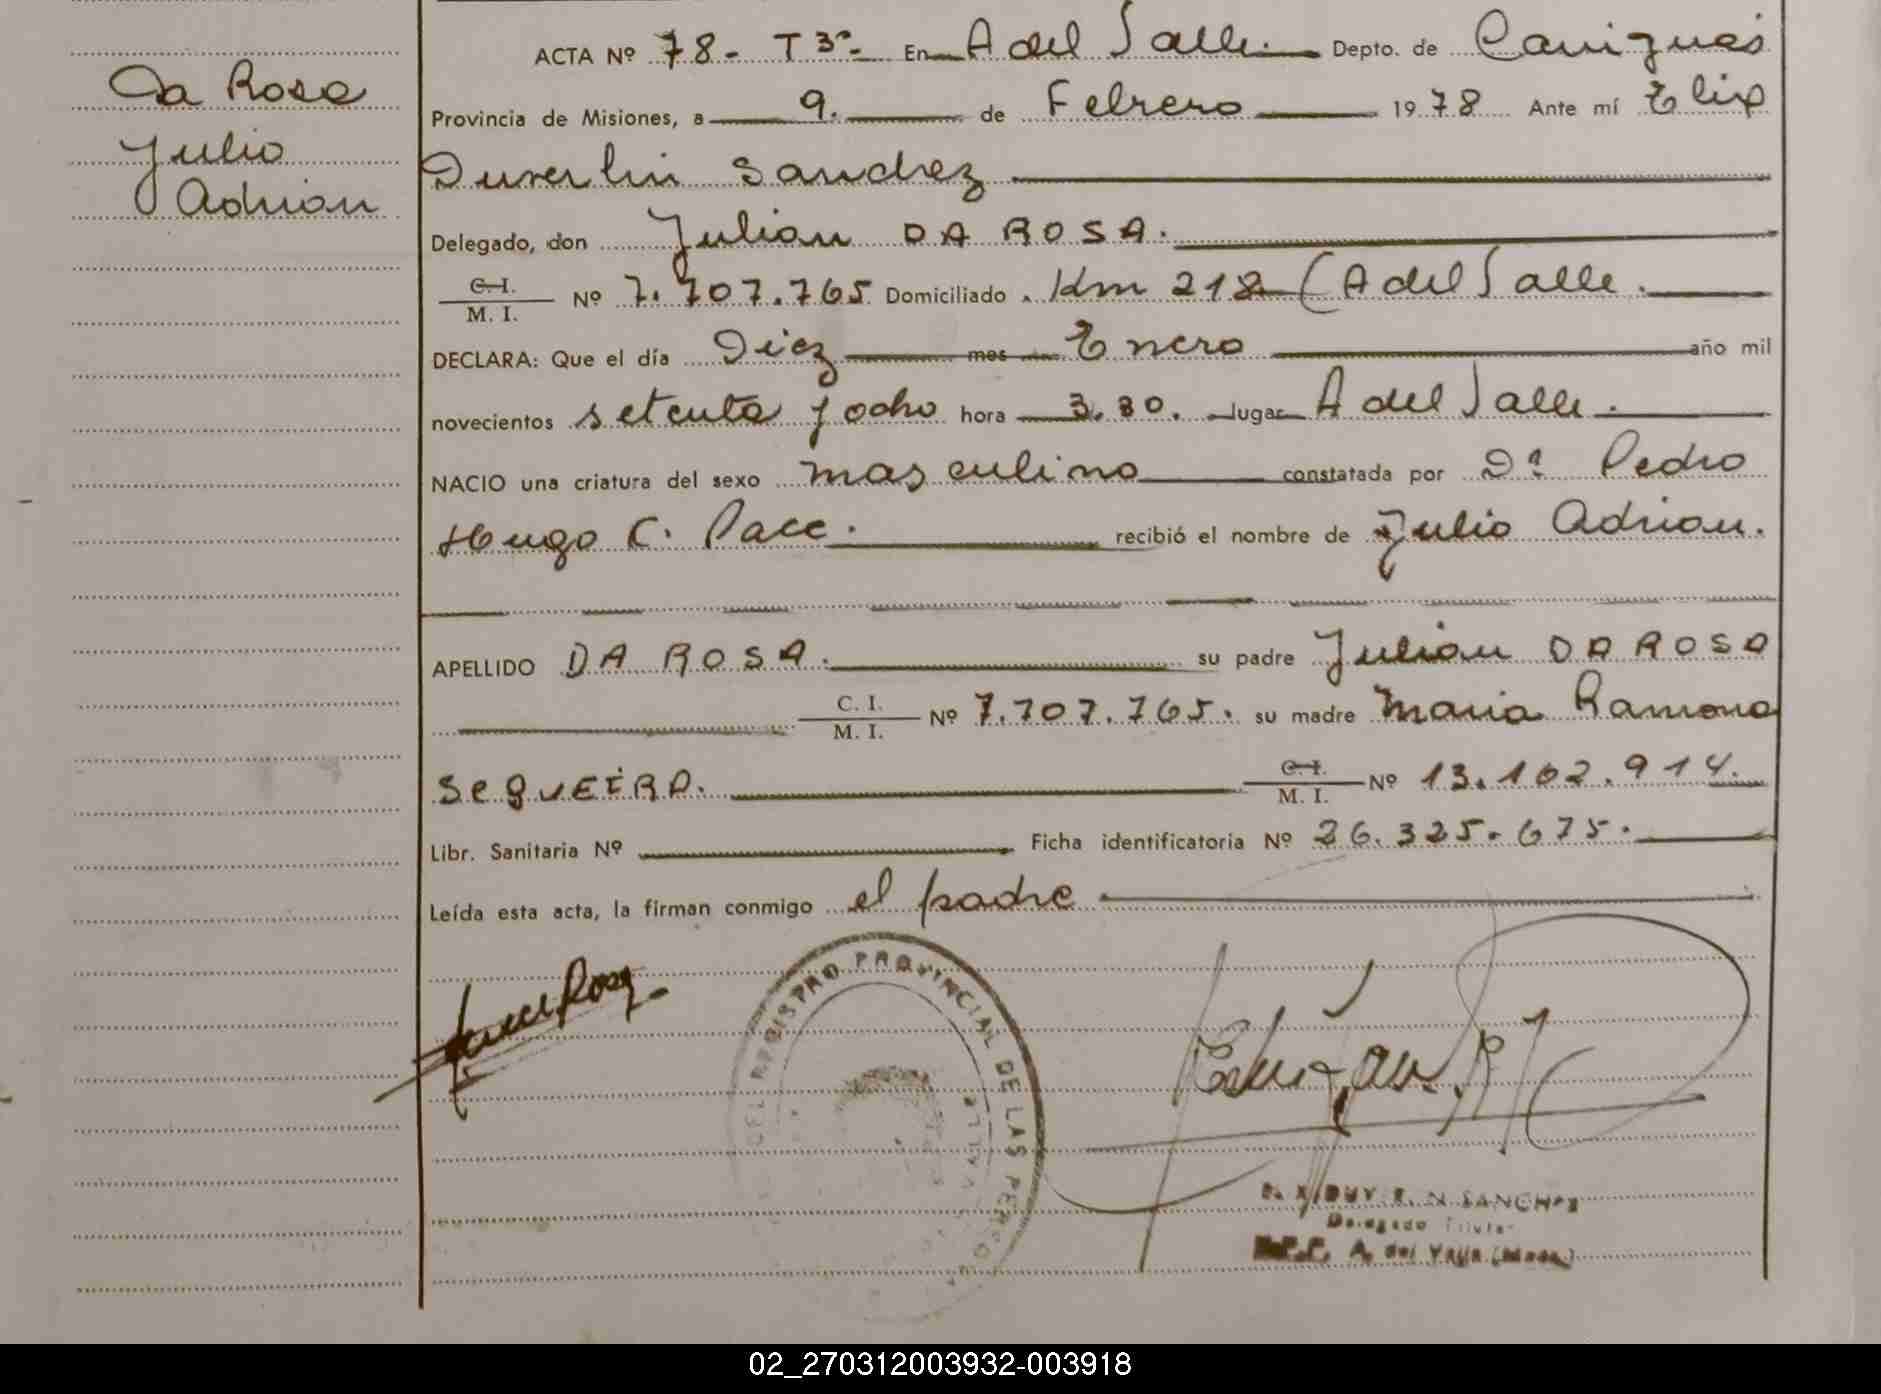 Da Rosa
Julio
Adrian
ACTA Nº 78- T 3º- En A del Valle. Depto. de Cainguas
Provincia de Misiones, a 9. de Febrero 1978 Ante mí Elix
Duverlin Sanchez
Delegado, don Julian DA ROSA.
C. I.
M. I. Nº 7.707.765 Domiciliado . Km 218 (A del Valle.
DECLARA: Que el día Diez mes Enero año mil
novecientos setenta y ocho hora 3.30. lugar A del Valle.
NACIO una criatura del sexo masculino constatada por Dº Pedro
Hugo C. Pace. recibió el nombre de Julio Adrian.
APELLIDO DA ROSA. su padre Julian DA ROSA
C. I.
M. I. Nº 7.707.765. su madre Maria Ramona
SeQUEiRA.
C. I.
M. I. Nº 13.102.914.
Libr. Sanitaria Nº Ficha identificatoria Nº 26.325.675.
Leída esta acta, la firman conmigo el padre
DEL REGISTRO PROVINCIAL DE LAS PERSONAS
SANCHEZ
Delegado Titular
A. del Valle (Mnes.)
02_270312003932-003918